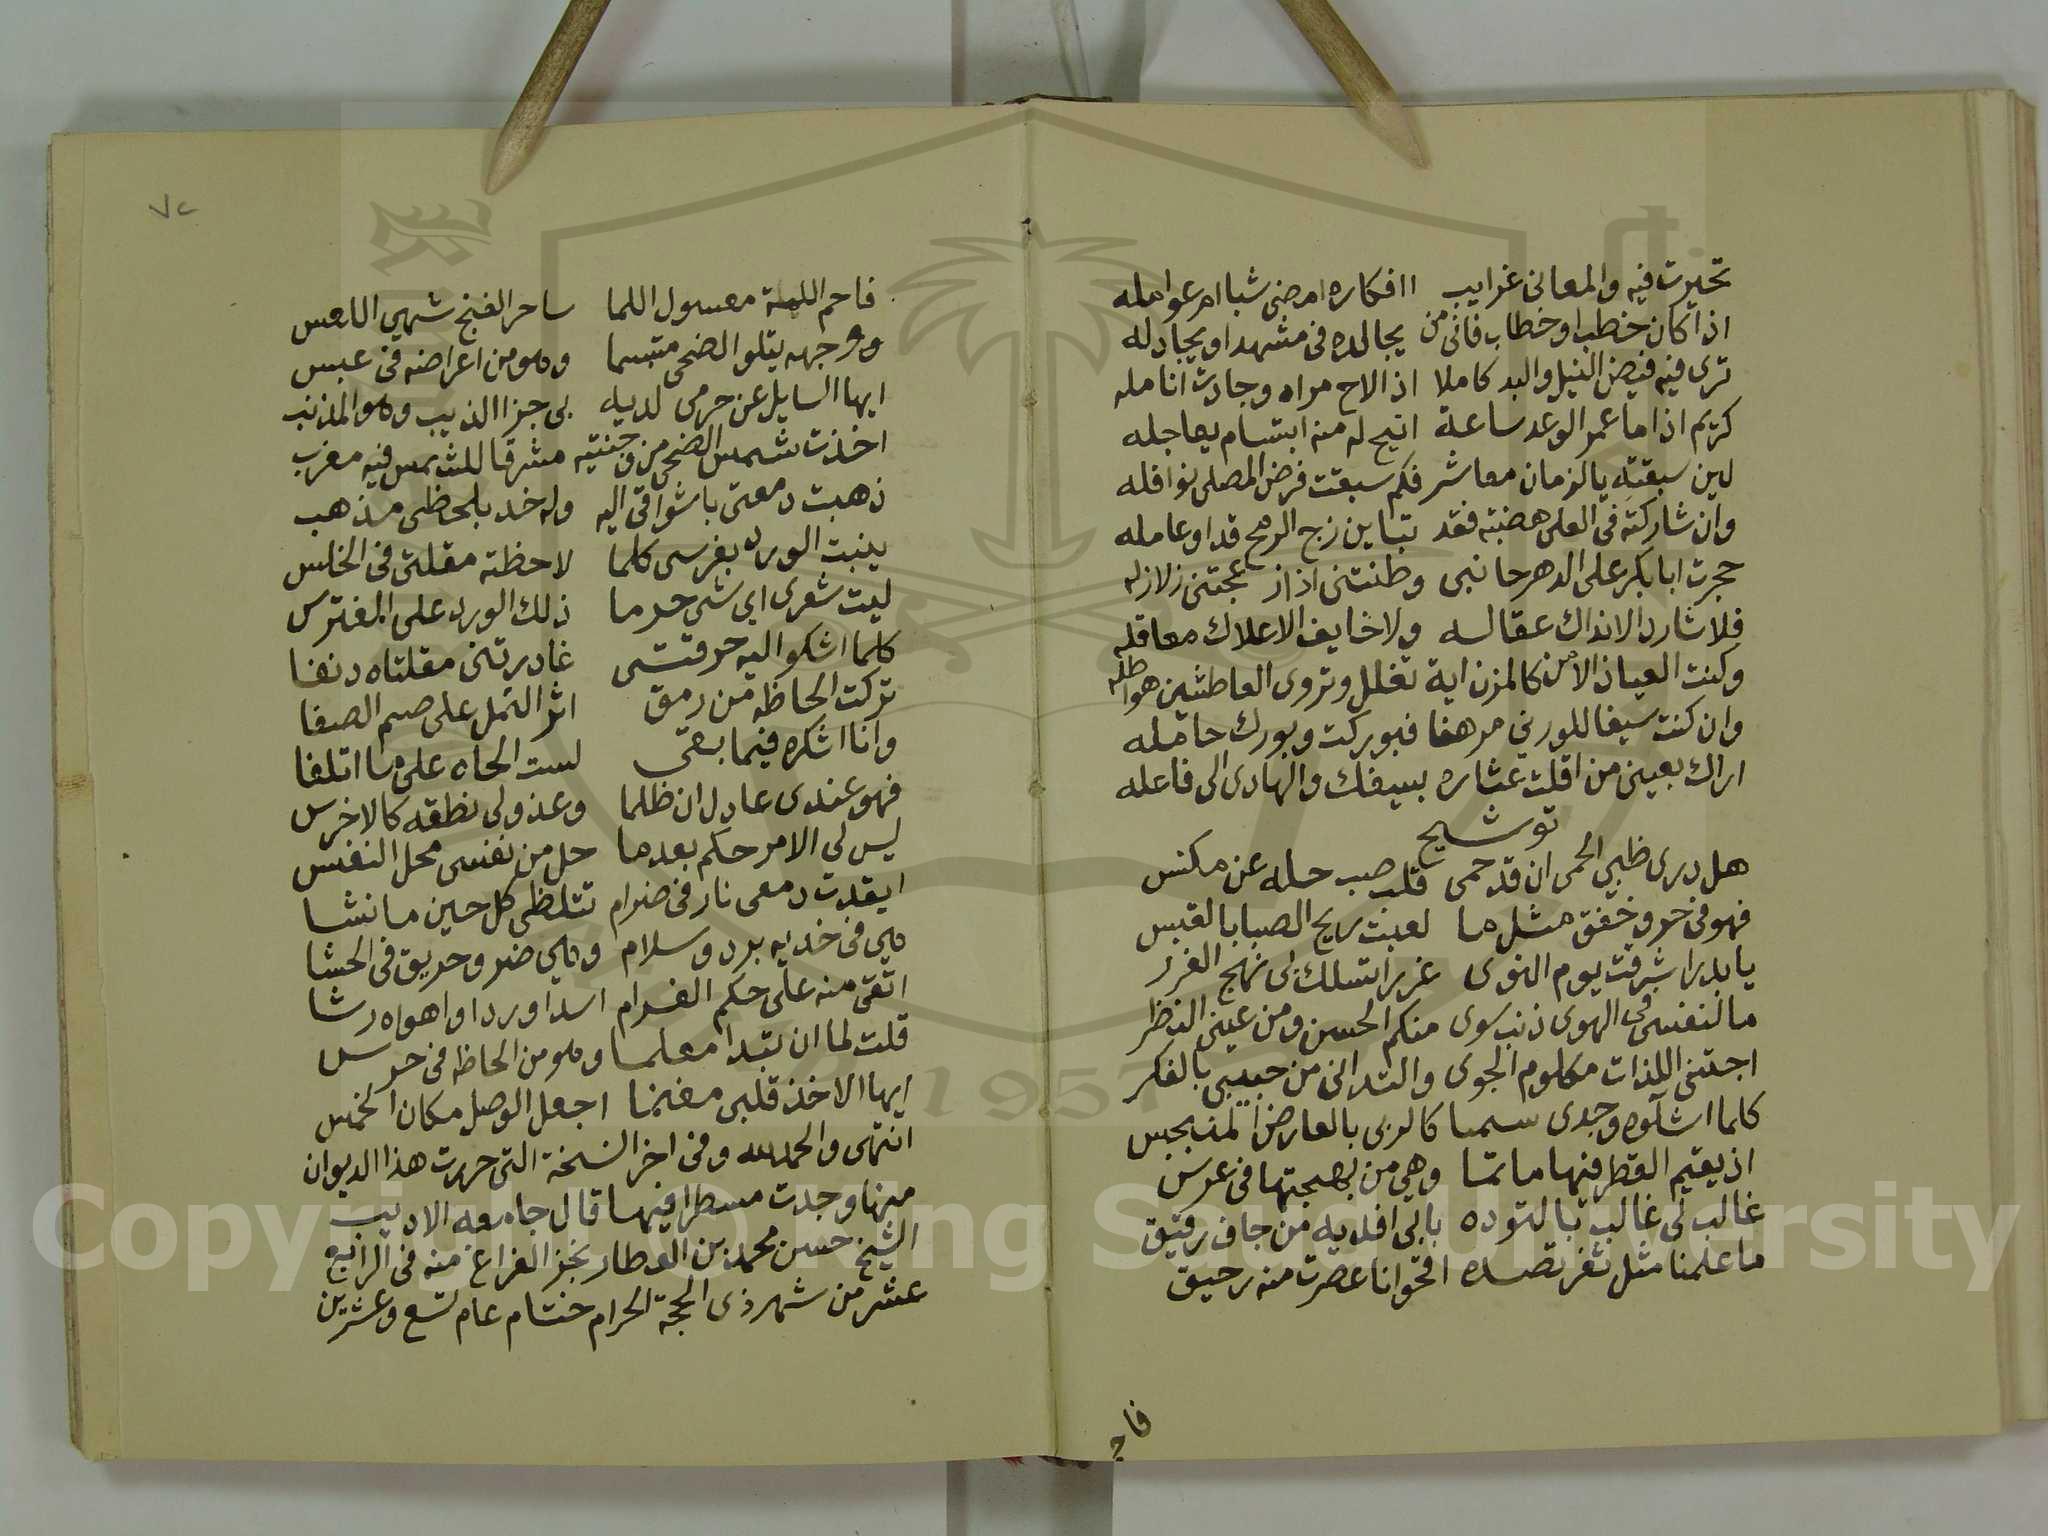 تحيرت فيه والمعاني غرايب اافكاره امرضي شباام عوامله
اذا كان خطب او خطاب فاني من يجالده في مشهد او يجادله
ترى فيه فيض النيل والبد كاملا اذ الاح مراه وجادت انامله
كريم اذا ما عمر الوعد ساعة اتيح له منه ابتسام يعاجله
لين سبقته يالزمان معاشر فكم سبقت فرض المصلى نوافله
وان شاركته في العلى هضبته فقد تباين زج الرمح قدا وعامله
حجرت ابا بكر على الدهر جانبي وطنتني اذاز عجتني زلازله
فلا شارد الا نداك عقاله ولا خايف الا علاك معاقله
وكنت العياذ الامن كالمزن اية تغلل وتروى العاطشين هواطله
وان كنت سيفا للورى مرهفا فبوركت وبورك حامله
اراك بعيني من اقلت عثاره بسيفك والهادى الى فاعله
توشيح
هل درى ظبي الحمى ان قد حمى قلب صب حله عن مكنس
فهو في حر وخفق مثل ما لعبت ريح الصبا بالقبس
يا بدرا شرقت يوم النوى غررا تسلك بي نهج الغرر
ما لنفسي في الهوى ذنب سوى منكم الحسن ومن عيني النظر
اجتني اللذات مكلوم الجوى والتداني من حبيبي بالفكر
كلما اشكوه وجدى سمسا كالربى بالعارض المنبجس
اذ يقيم القطر فيها ماتما وهي من بهجتها في عرس
غالب لي غالب بالتوده بابي افديه من جاف رقيق
ما علمنا مثل ثغر نضده اقحوانا عصرت منه رحيق
فاحم
٧٢
فاحم اللمة معسول اللما ساحر الغنج شهي اللعس
ووجهه يتلو الضحى متبسما وهو من اعراضه في عبس
ايها السايل عن حرمي لديه لي جزا الذيب وهو المذنب
اخذت شمس الضحى من وجنتيه مشرقا للشمس فيه مغرب
ذهبت دمعتي باشواقي اليه وله خد بلحظي مذهب
ينبت الورد بغرسي كلما لاحظته مقلتي في الخلس
ليت شعرى اي شي حرما ذلك الورد على المفترس
كلما اشكو اليه حرقتي غادرتني مقلتاه دنفا
تركت الحاظه من رمقي اثر النمل على صم الصفا
وانا اشكره فيما بقي لست الحاه على ما اتلفا
فهو عندى عادل ان ظلما وعذولي نطقه كالاخرس
ليس لي الامر حكم بعدما حل من نفسي محل النفس
ايقدت دمعي نار في ضرام تتلظى كل حين ما نشا
هي في خديه برد وسلام وهي ضر وحريق في الحشا
اتقى منه على حكم الغرام اسدا وردا واهواه رشا
قلت لما ان تبدا معلما وهو من الحاظه في حرس
ايها الاخذ قلبي مغنما اجعل الوصل مكان الخمس
انتهى والحمد لله وفي اخر النسخة التي حررت هذا الديوان
منها وجدت مسطرا فيها قال جامعه الاديب
الشيخ حسن محمد بن العطار نجز الفراغ منه في الرابع
عشر من شهر ذى الحجة الحرام ختام عام تسع وعشرين
Copyright © King Saud University
1957